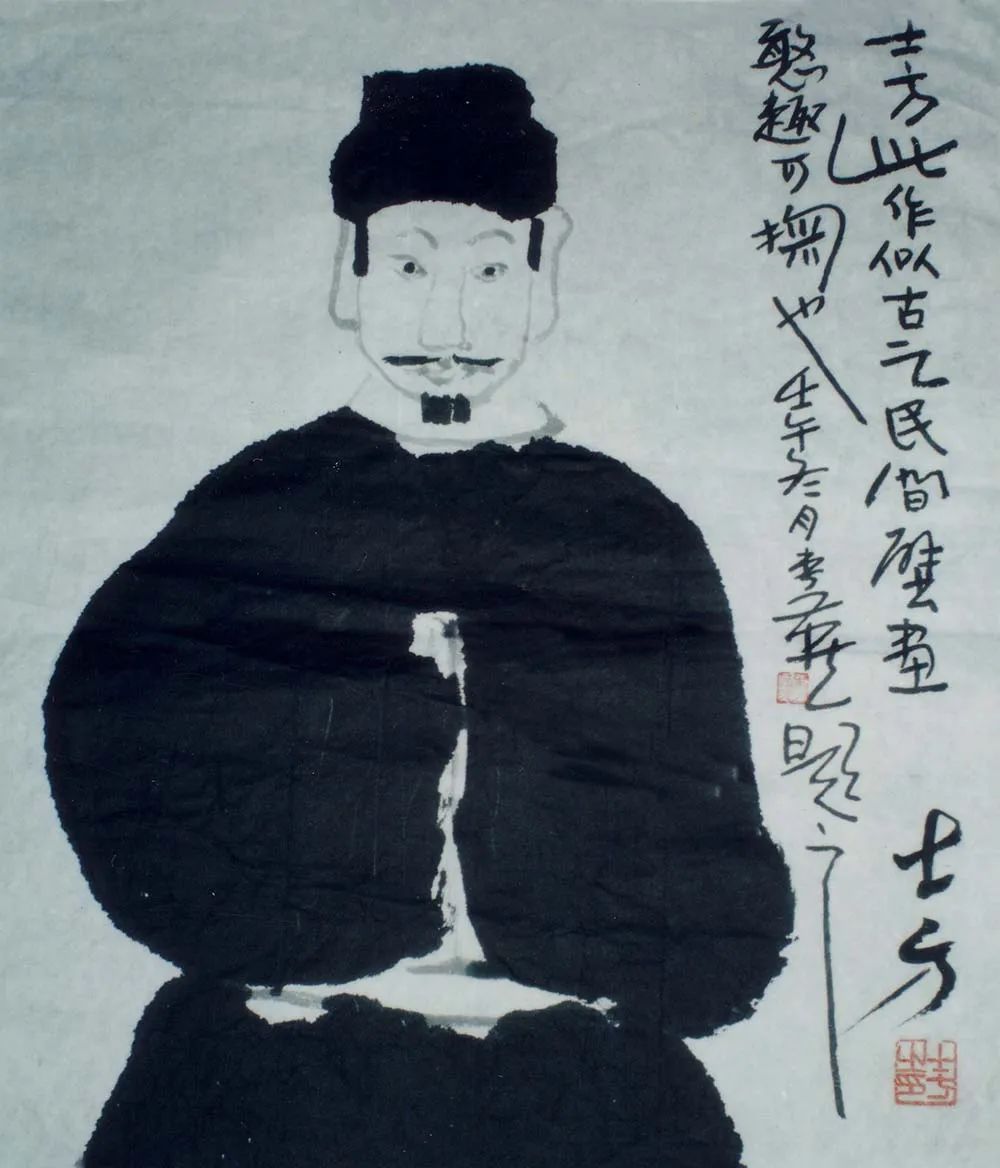 士方此作似古之民間壁畫
憨趣可撫也 壬午冬月 題之
士方
士方之印